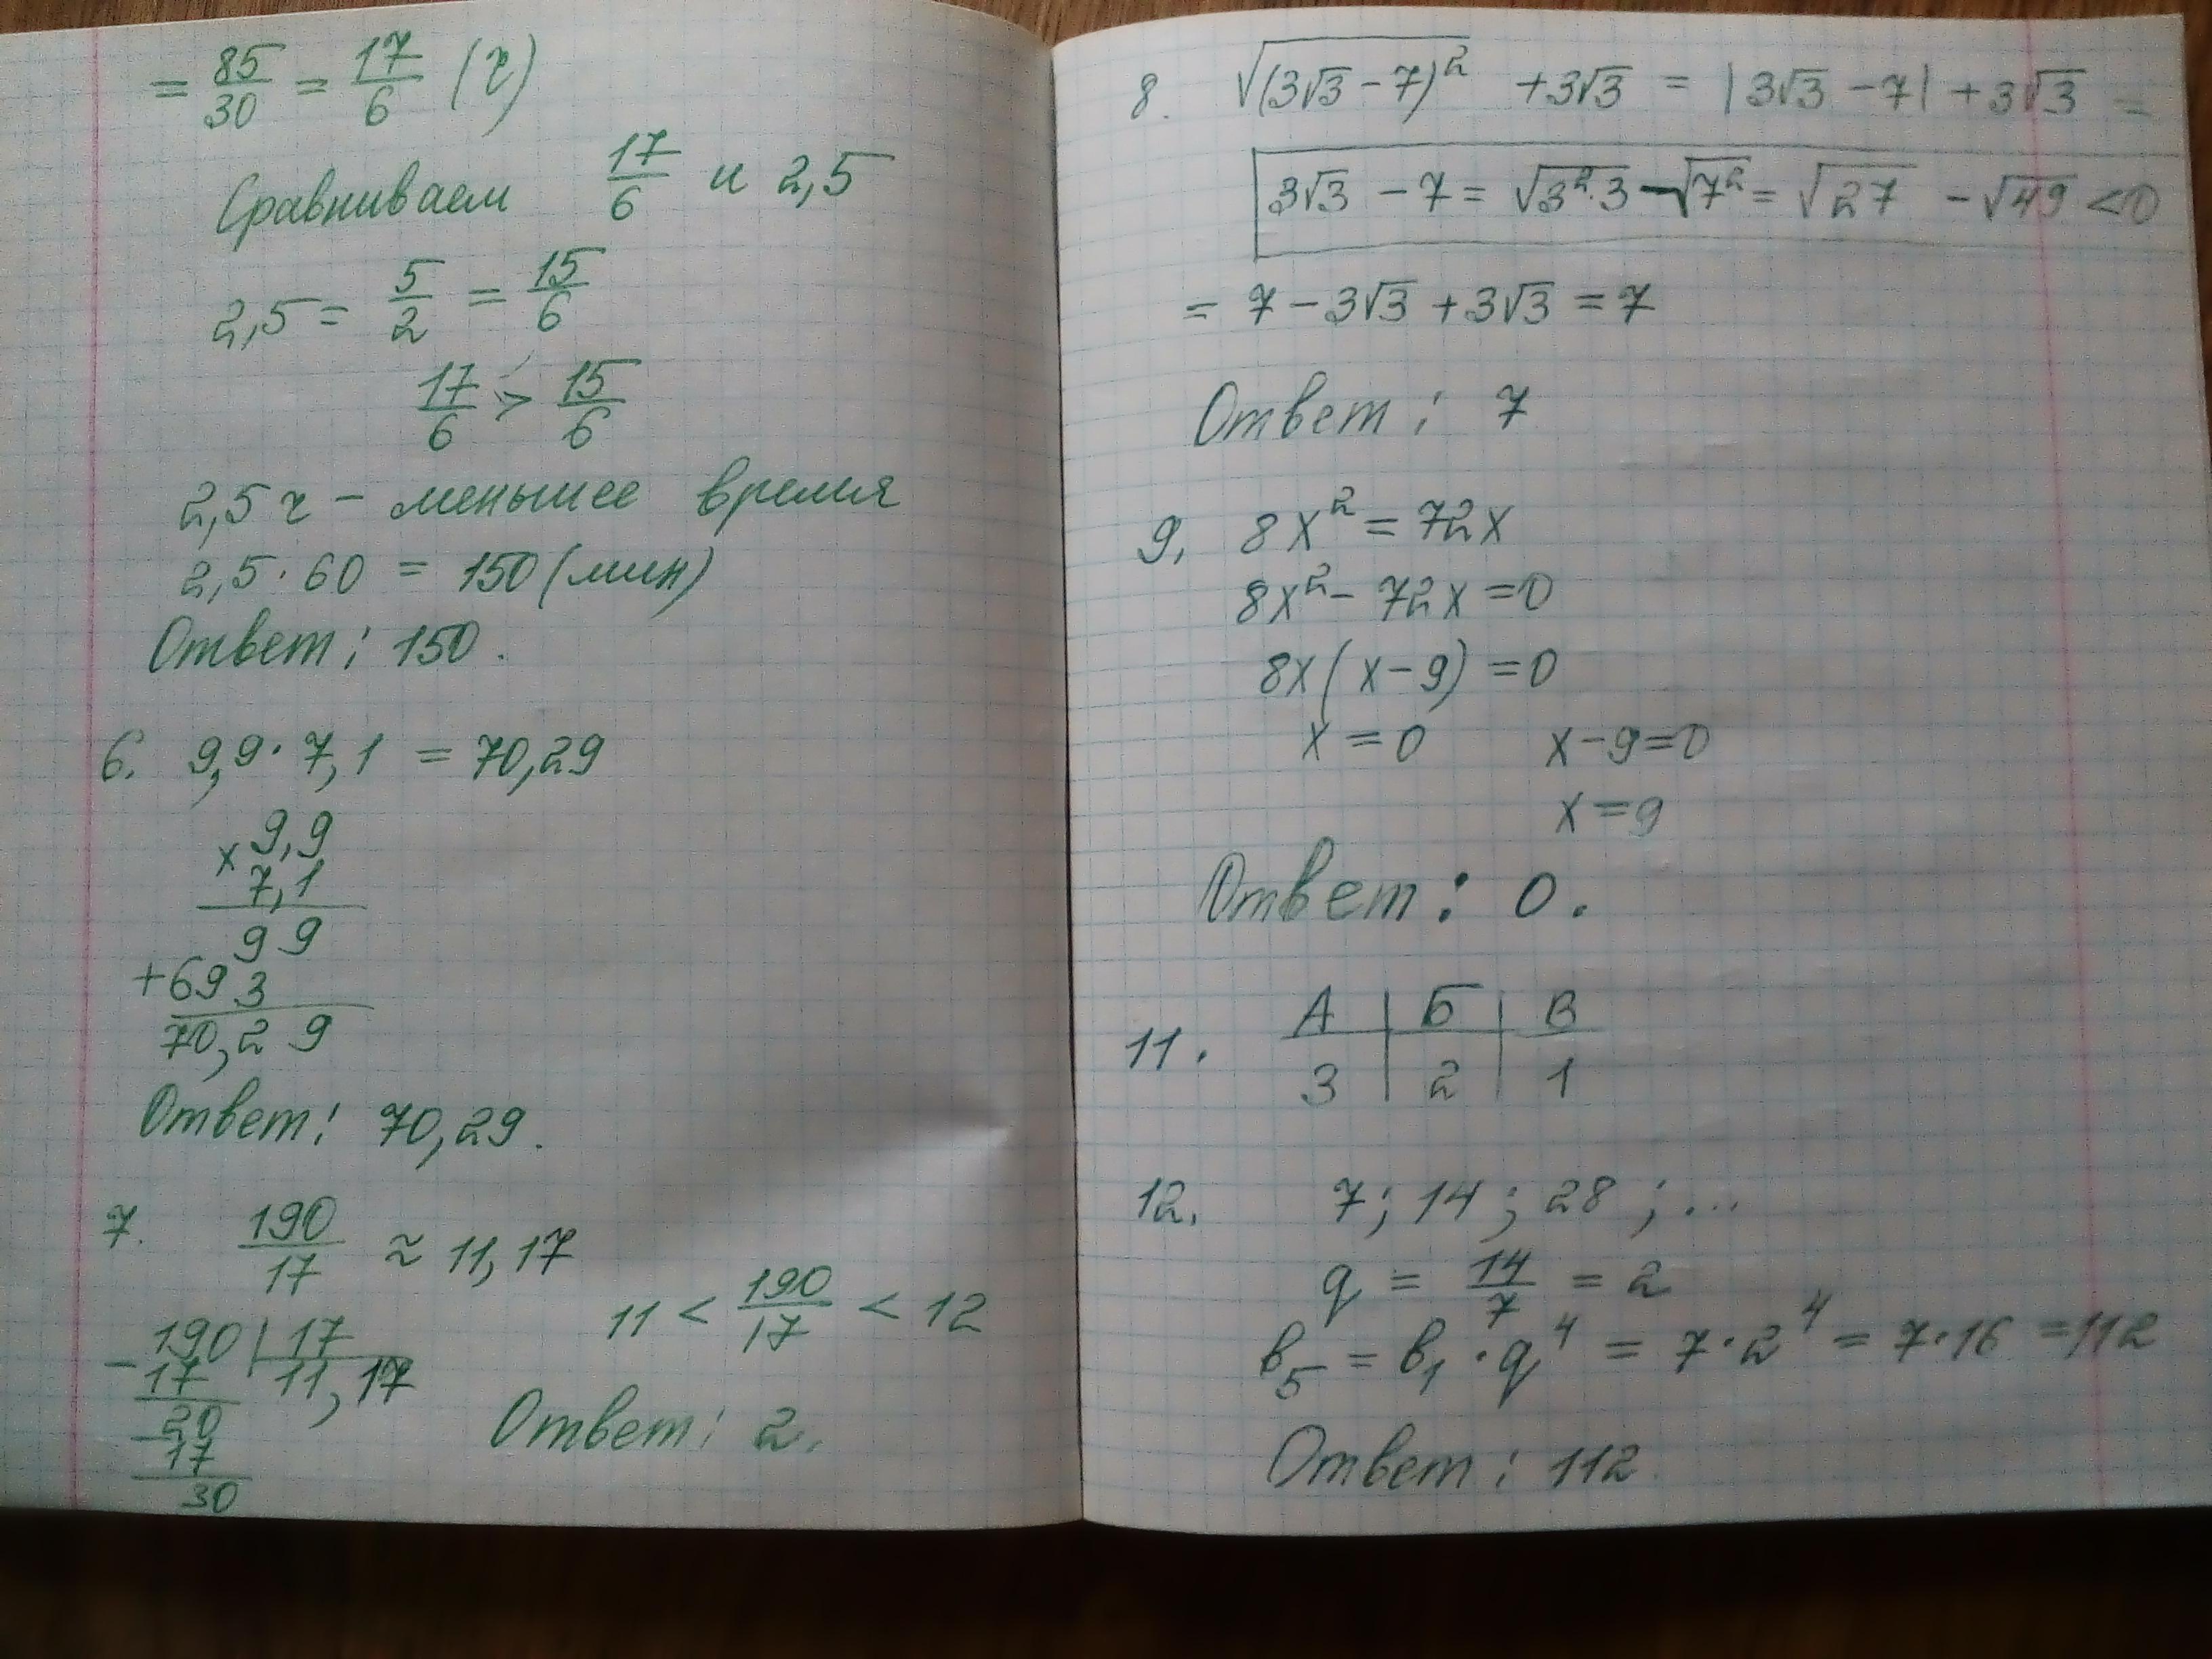 = 85/30 = 17/6 (ч)
Сравниваем 17/6 и 2,5
2,5 = 5/2 = 15/6
17/6 > 15/6
2,5 ч – меньшее время
2,5 · 60 = 150 (мин)
Ответ: 150.
6. 9,9 · 7,1 = 70,29
× 9,9
7,1
99
+693
70,29
Ответ: 70,29.
7. 190/17 ≈ 11,17
11 < 190/17 < 12
– 190 | 17
17 | 11,17
– 20
17
30
Ответ: 2.
8. √(3√3 – 7)² + 3√3 = |3√3 – 7| + 3√3 =
3√3 – 7 = √3²·3 – √7² = √27 – √49 < 0
= 7 – 3√3 + 3√3 = 7
Ответ: 7
9. 8x² = 72x
8x² – 72x = 0
8x(x – 9) = 0
x = 0 x – 9 = 0
x = 9
Ответ: 0.
11. А | Б | В
3 | 2 | 1
12. 7; 14; 28; ...
q = 14/7 = 2
в₅ = в₁ · q⁴ = 7 · 2⁴ = 7 · 16 = 112
Ответ: 112.